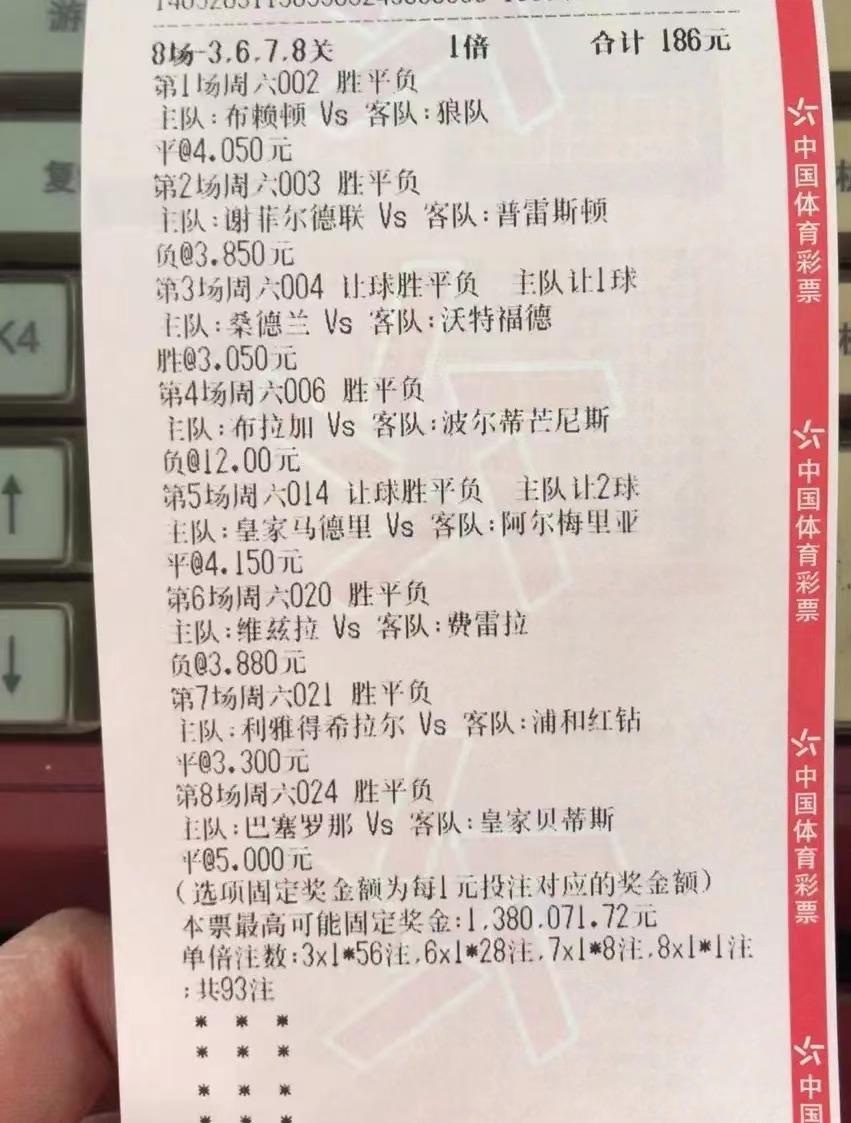 8场-3.6.7.8关 1倍 合计 186元
第1场周六002 胜平负
主队:布赖顿 Vs 客队:狼队
平@4.050元
第2场周六003 胜平负
主队:谢菲尔德联 Vs 客队:普雷斯顿
负@3.850元
第3场周六004 让球胜平负 主队让1球
主队:桑德兰 Vs 客队:沃特福德
胜@3.050元
第4场周六006 胜平负
主队:布拉加 Vs 客队:波尔蒂芒尼斯
负@12.00元
第5场周六014 让球胜平负 主队让2球
主队:皇家马德里 Vs 客队:阿尔梅里亚
平@4.150元
第6场周六020 胜平负
主队:维兹拉 Vs 客队:费雷拉
负@3.880元
第7场周六021 胜平负
主队:利雅得希拉尔 Vs 客队:浦和红钻
平@3.300元
第8场周六024 胜平负
主队:巴塞罗那 Vs 客队:皇家贝蒂斯
平@5.000元
(选项固定奖金额为每1元投注对应的奖金额)
本票最高可能固定奖金:1,380,071.72元
单倍注数:3x1*56注,6x1*28注,7x1*8注,8x1*1注
;共93注
* * *
* * *
* * *
* * *
中国体育彩票
中国体育彩票
中国体育彩票
中国
游
复
K4
↑
↓